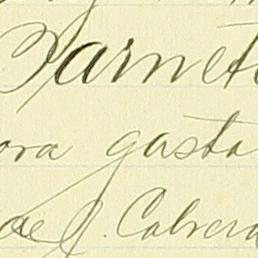 Barnet
ora gasta
de J. Cabrera